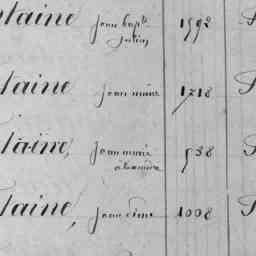 ntaine jean bapte 1592
julien
taine jean marie 1218
taine, jean marie 938
alexandre
taine, jean aimé 1008